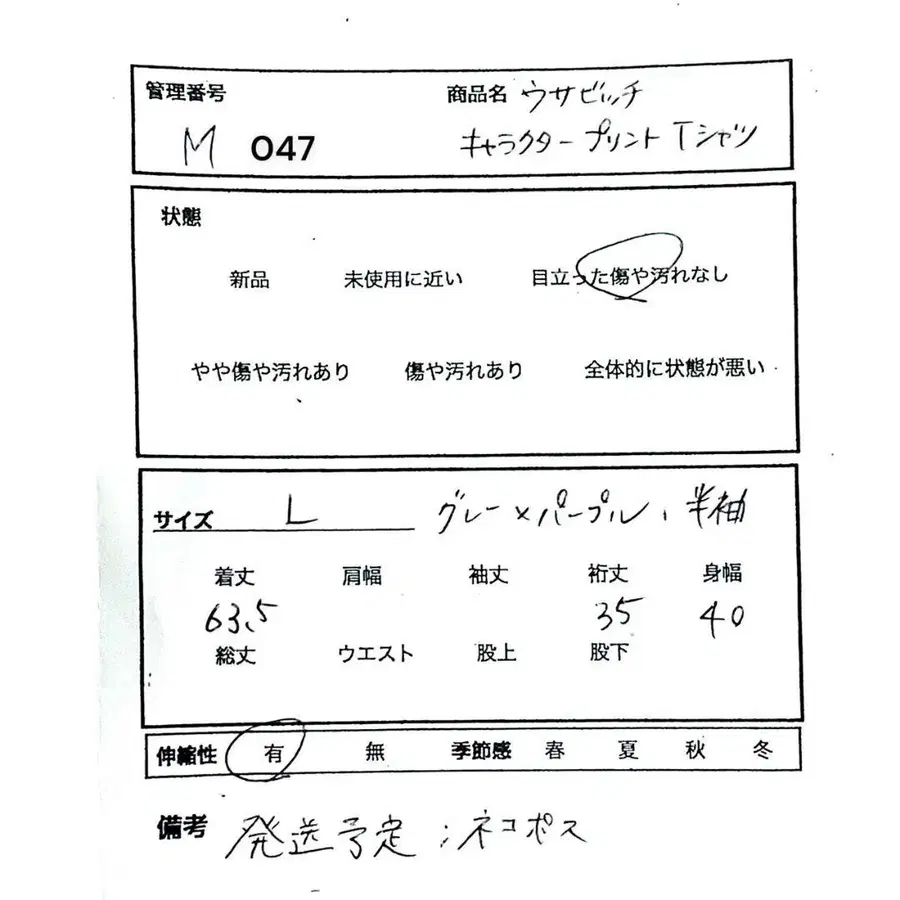 管理番号 商品名 ウサビッチ
M 047 キャラクタープリントTシャツ
状態
新品 未使用に近い 目立った傷や汚れなし
やや傷や汚れあり 傷や汚れあり 全体的に状態が悪い
サイズ L グレー×パープル、半袖
着丈 肩幅 袖丈 裄丈 身幅
63.5 35 40
総丈 ウエスト 股上 股下
伸縮性 有 無 季節感 春 夏 秋 冬
備考 発送予定:ネコポス